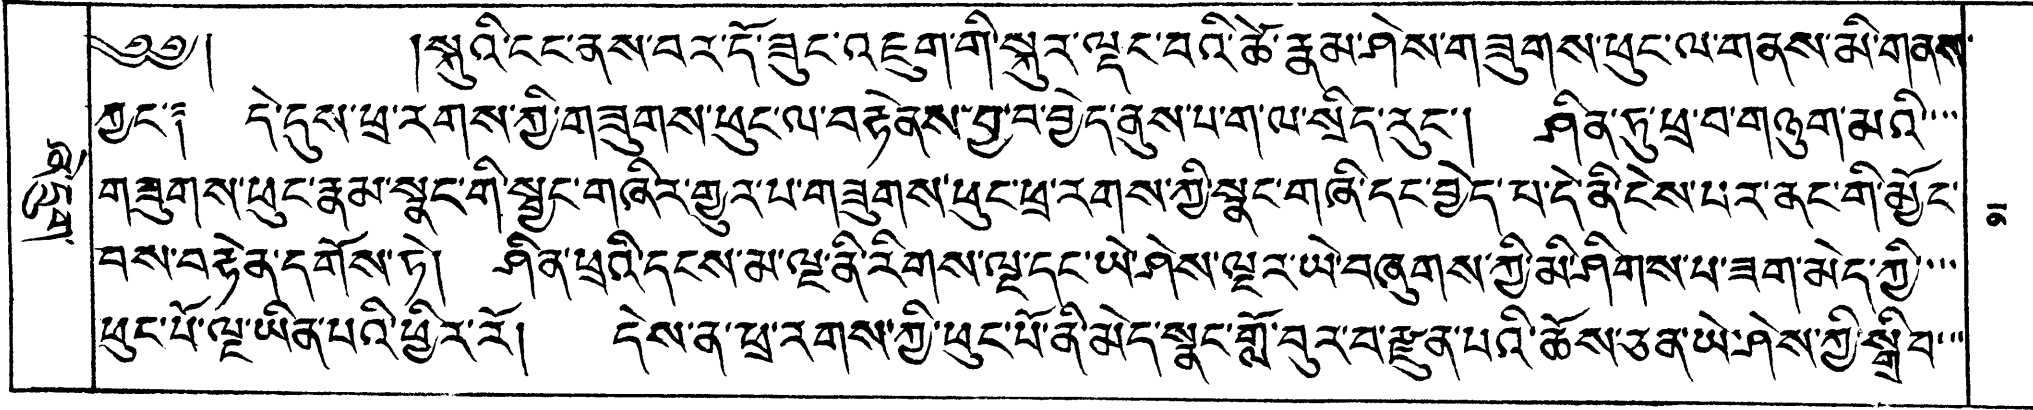 ༄༅། །སྐུའི་ངང་ནས་བར་དོ་ཟུང་འཇུག་གི་སྐུར་ལྡང་བའི་ཚེ་རྣམ་ཤེས་གཟུགས་ཕུང་ལ་གནས་མི་གནས་
ཀྱང་། དེ་དུས་ཕྲ་རགས་ཀྱི་གཟུགས་ཕུང་ལ་བརྟེནས་བྱ་བ་བྱེད་ནུས་པ་ག་ལ་སྲིད་རུང་། ཤིན་ཏུ་ཕྲ་བ་གཉུག་མའི་
གཟུགས་ཕུང་རྣམ་སྣང་གི་སྦྱང་གཞིར་གྱུར་པ་གཟུགས་ཕུང་ཕྲ་རགས་ཀྱི་སྣང་གཞི་དང་བྱེད་པ་དེ་ནི་ངེས་པར་ནང་གི་མྱོང་
བས་བརྟེན་དགོས་ཏེ། ཤིན་ཕྲའི་དྭངས་མ་ལྔ་ནི་རིགས་ལྔ་དང་ཡེ་ཤེས་ལྔར་ཡེ་བཞུགས་ཀྱི་མི་ཤིགས་པ་ཟག་མེད་ཀྱི་
ཕུང་པོ་ལྔ་ཡིན་པའི་ཕྱིར་རོ། དེས་ན་ཕྲ་རགས་ཀྱི་ཕུང་པོ་ནི་མེད་སྣང་གློ་བུར་བ་རྫུན་པའི་ཆོས་ཅན་ཡེ་ཤེས་ཀྱི་སྒྲིབ་